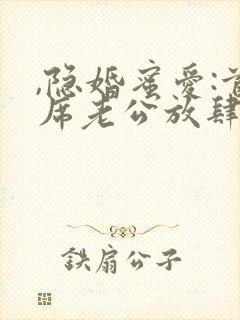 ,隐婚蜜爱:首
席老公放肆
鉄扇公子